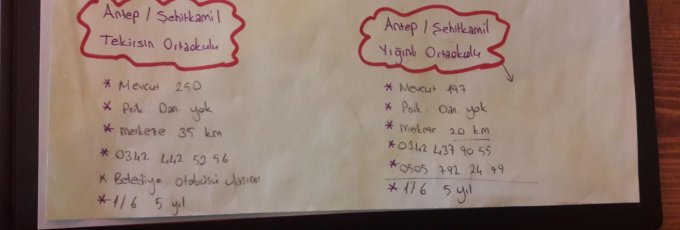 Antep / Şehitkamil
Tekirsin Ortaokulu
* Mevcut 250
* Psik. Dan. yok
* Merkeze 35 km
* 0342 442 52 56
* Belediye otobüsü ulaşımı
* 1/6 5 yıl
Antep / Şehitkamil
Yığınlı Ortaokulu
* Mevcut 197
* Psik. Dan yok
* Merkeze 20 km
* 0342 437 90 55
* 0505 792 24 49
* 1/6 5 yıl